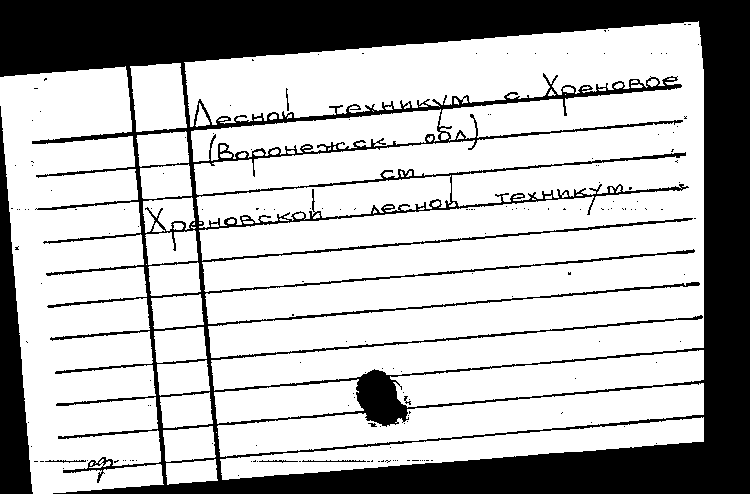 Лесной техникум с. Хреновое
(Воронежск. обл)
см.
Хреновской лесной техникум.